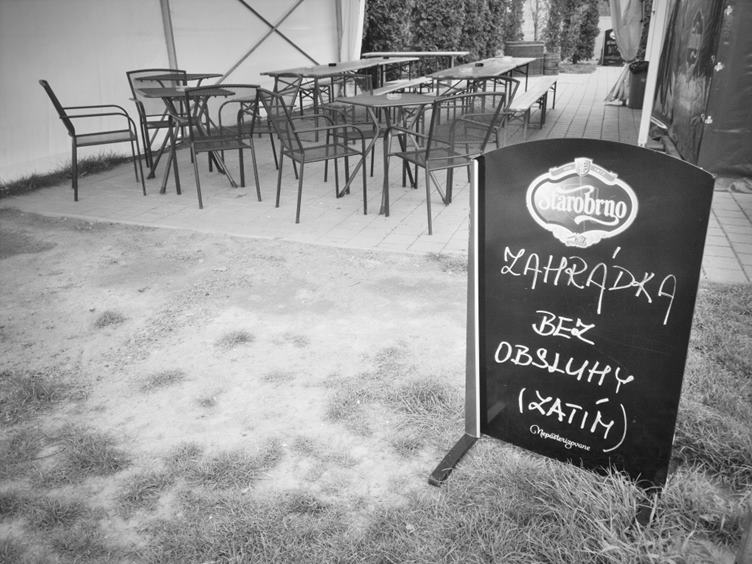 Starobrno
ZAHRÁDKA
BEZ
OBSLUHY
(ZATÍM)
Nepasterizované